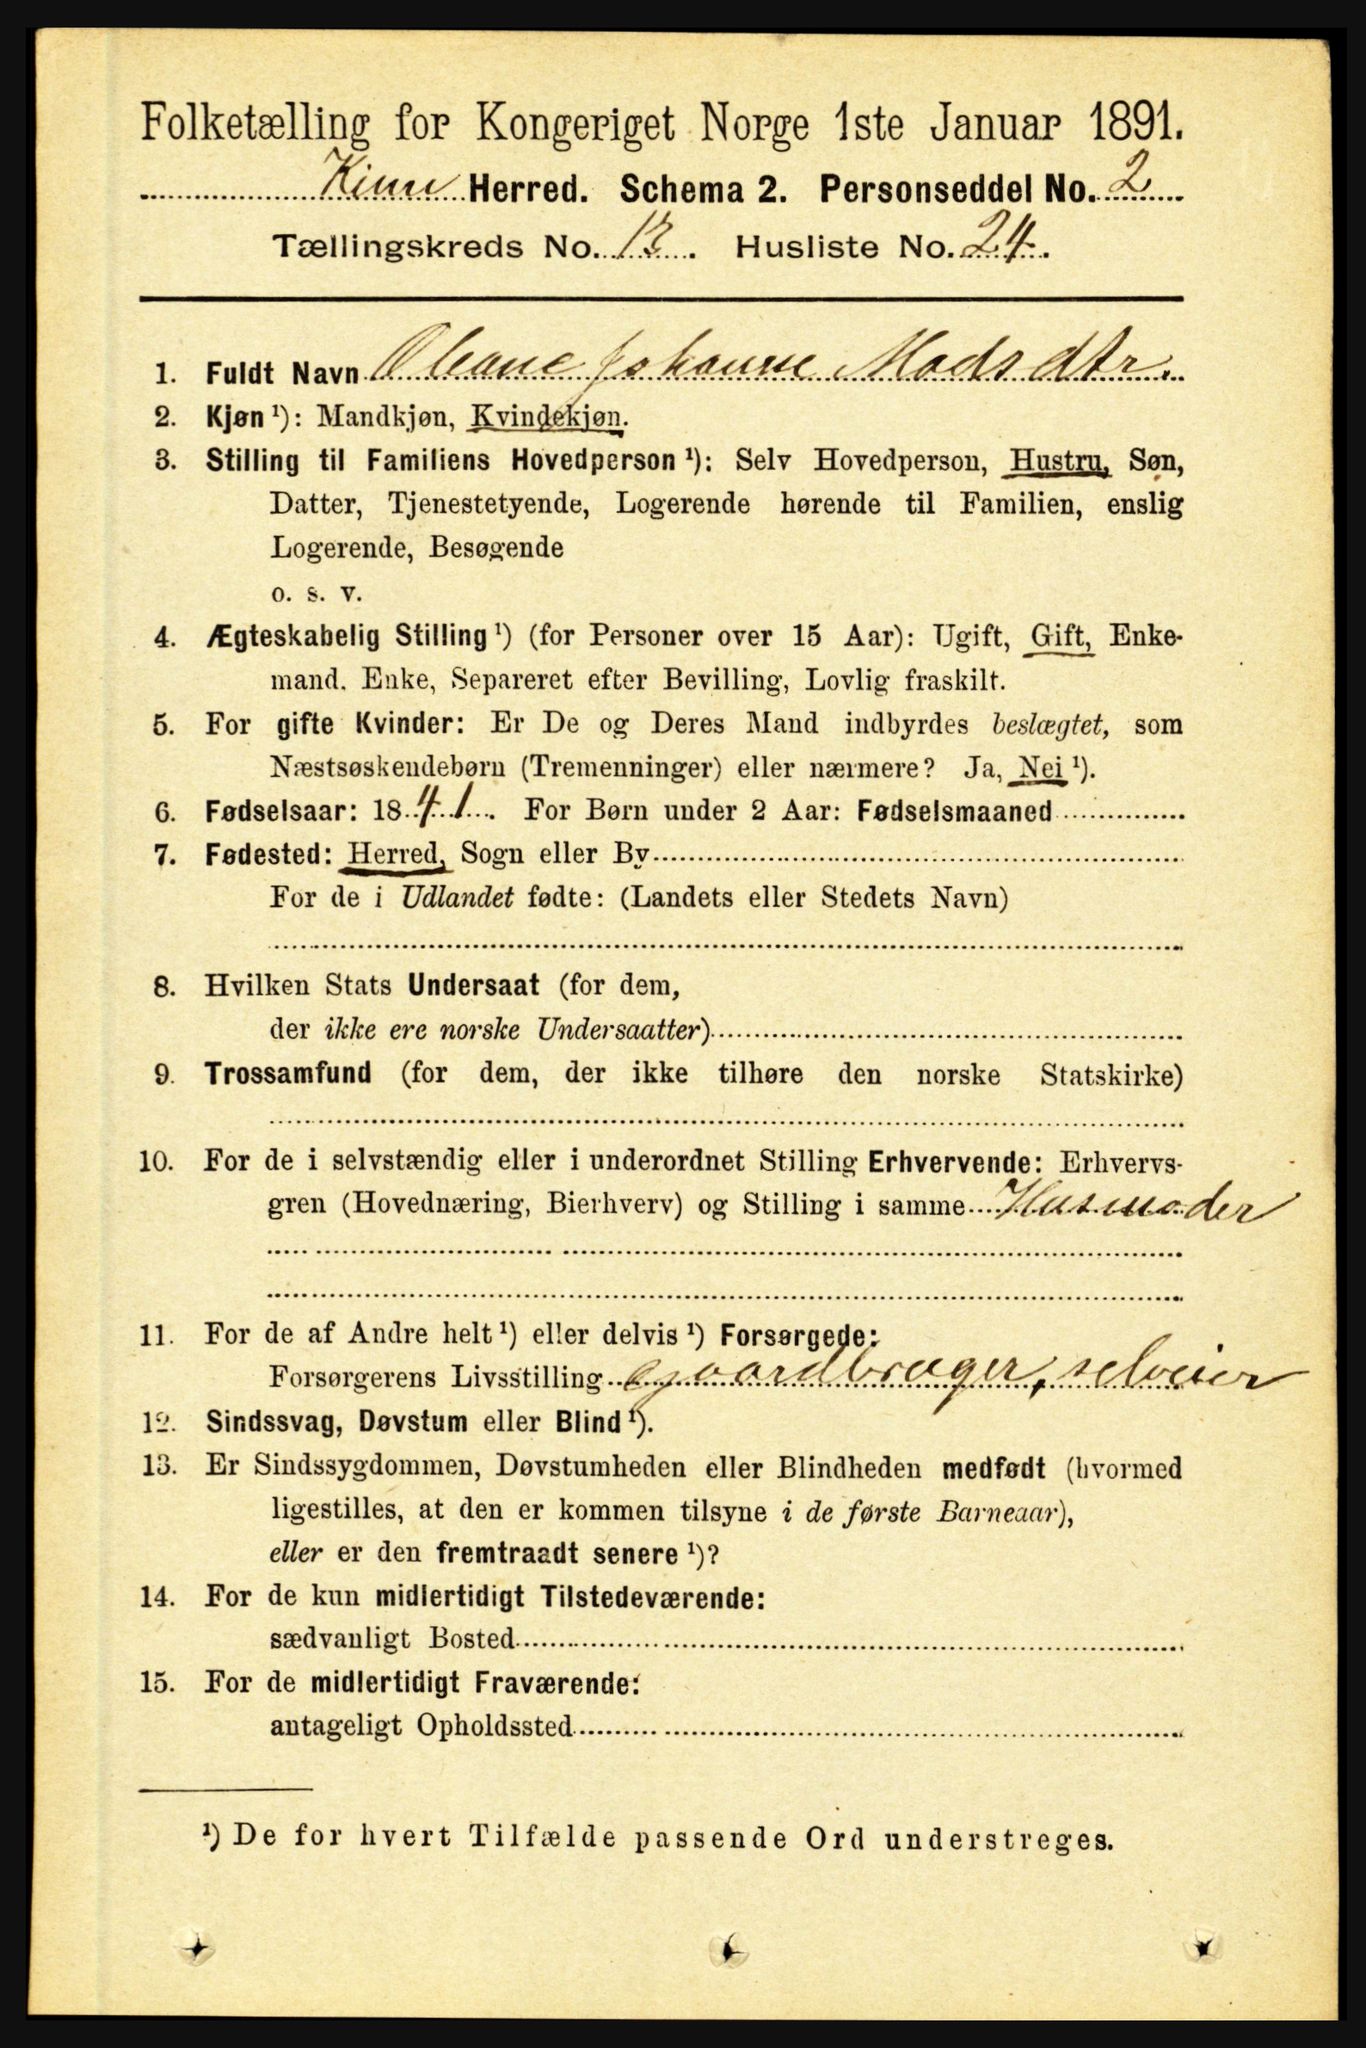 Folketælling for Kongeriget Norge 1ste Januar 1891.
Kinn Herred. Schema 2. Personseddel No. 2
Tællingskreds No. 13. Husliste No. 24.
1. Fuldt Navn Oleane Johanne Madsdtr.
2. Kjøn ¹): Mandkjøn, Kvindekjøn.
3. Stilling til Familiens Hovedperson ¹): Selv Hovedperson, Hustru, Søn,
Datter, Tjenestetyende, Logerende hørende til Familien, enslig
Logerende, Besøgende
o. s. v.
4. Ægteskabelig Stilling ¹) (for Personer over 15 Aar): Ugift, Gift, Enke-
mand. Enke, Separeret efter Bevilling, Lovlig fraskilt.
5. For gifte Kvinder: Er De og Deres Mand indbyrdes beslægtet, som
Næstsøskendebørn (Tremenninger) eller nærmere? Ja, Nei ¹).
6. Fødselsaar: 1841. For Børn under 2 Aar: Fødselsmaaned
7. Fødested: Herred, Sogn eller By
For de i Udlandet fødte: (Landets eller Stedets Navn)
8. Hvilken Stats Undersaat (for dem,
der ikke ere norske Undersaatter)
9. Trossamfund (for dem, der ikke tilhøre den norske Statskirke)
10. For de i selvstændig eller i underordnet Stilling Erhvervende: Erhvervs-
gren (Hovednæring, Bierhverv) og Stilling i samme Husmoder
11. For de af Andre helt ¹) eller delvis ¹) Forsørgede:
Forsørgerens Livsstilling gaardbruger, selveier
12. Sindssvag, Døvstum eller Blind ¹).
13. Er Sindssygdommen, Døvstumheden eller Blindheden medfødt (hvormed
ligestilles, at den er kommen tilsyne i de første Barneaar),
eller er den fremtraadt senere ¹)?
14. For de kun midlertidigt Tilstedeværende:
sædvanligt Bosted
15. For de midlertidigt Fraværende:
antageligt Opholdssted
¹) De for hvert Tilfælde passende Ord understreges.